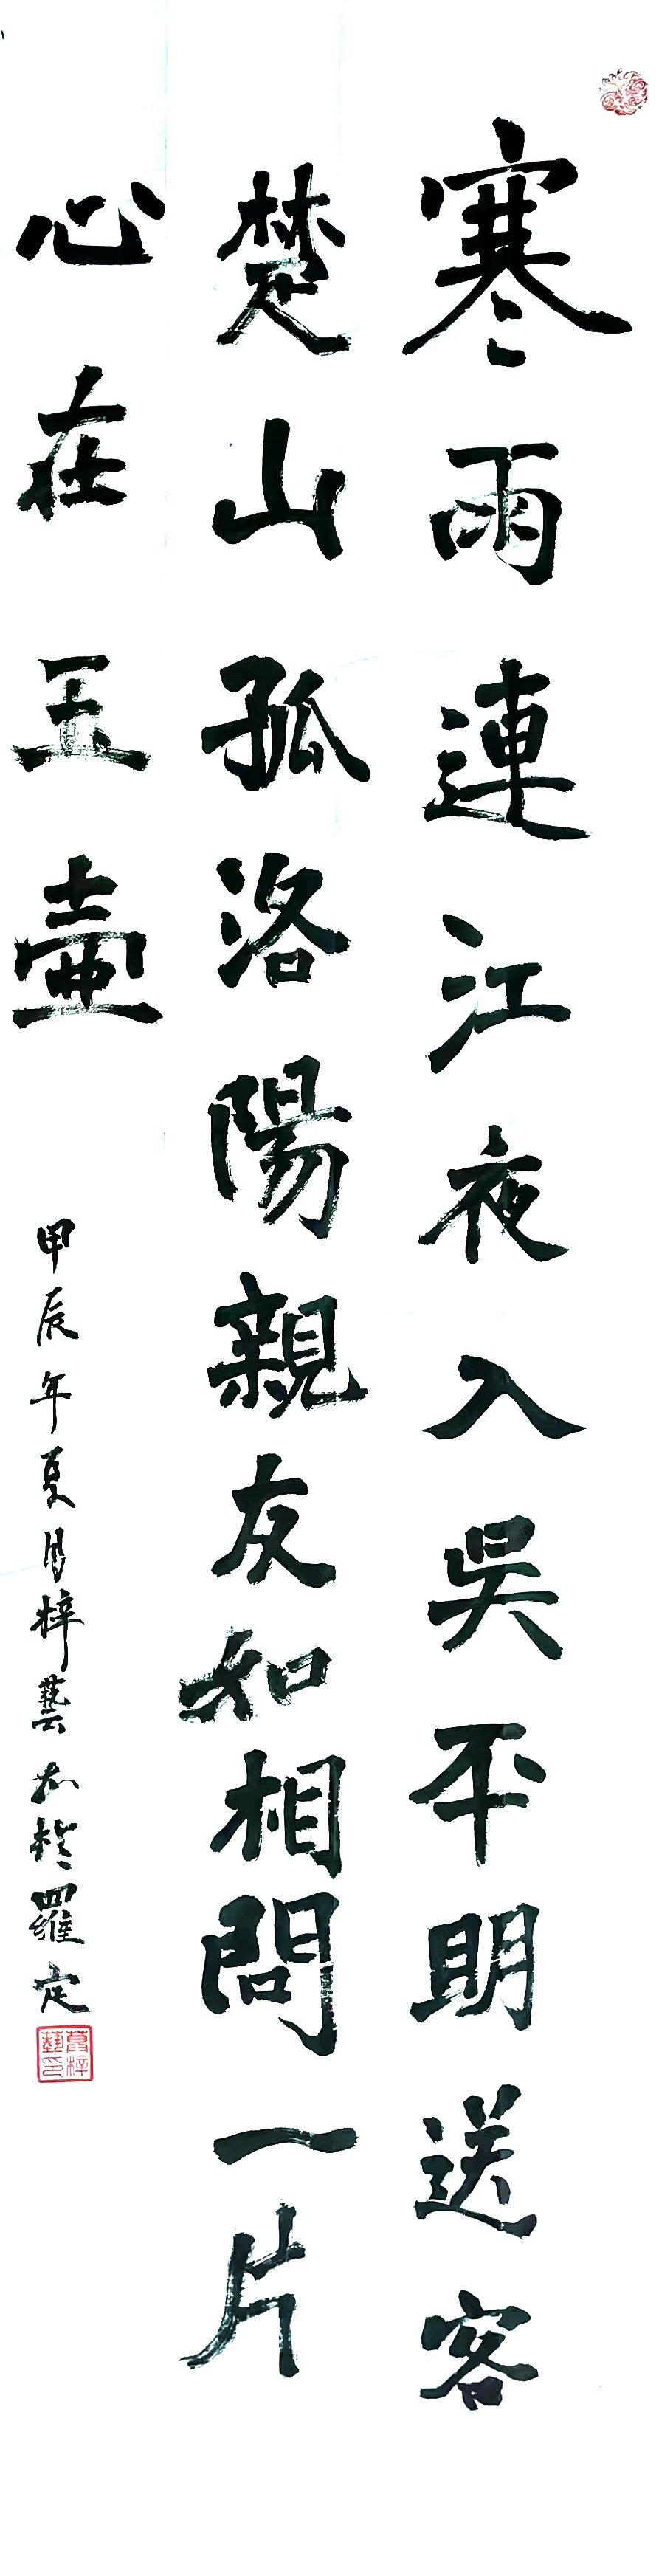 寒雨連江夜入吳平明送客
楚山孤洛陽親友如相問一片
心在玉壺
甲辰年夏月梓藝書於羅定